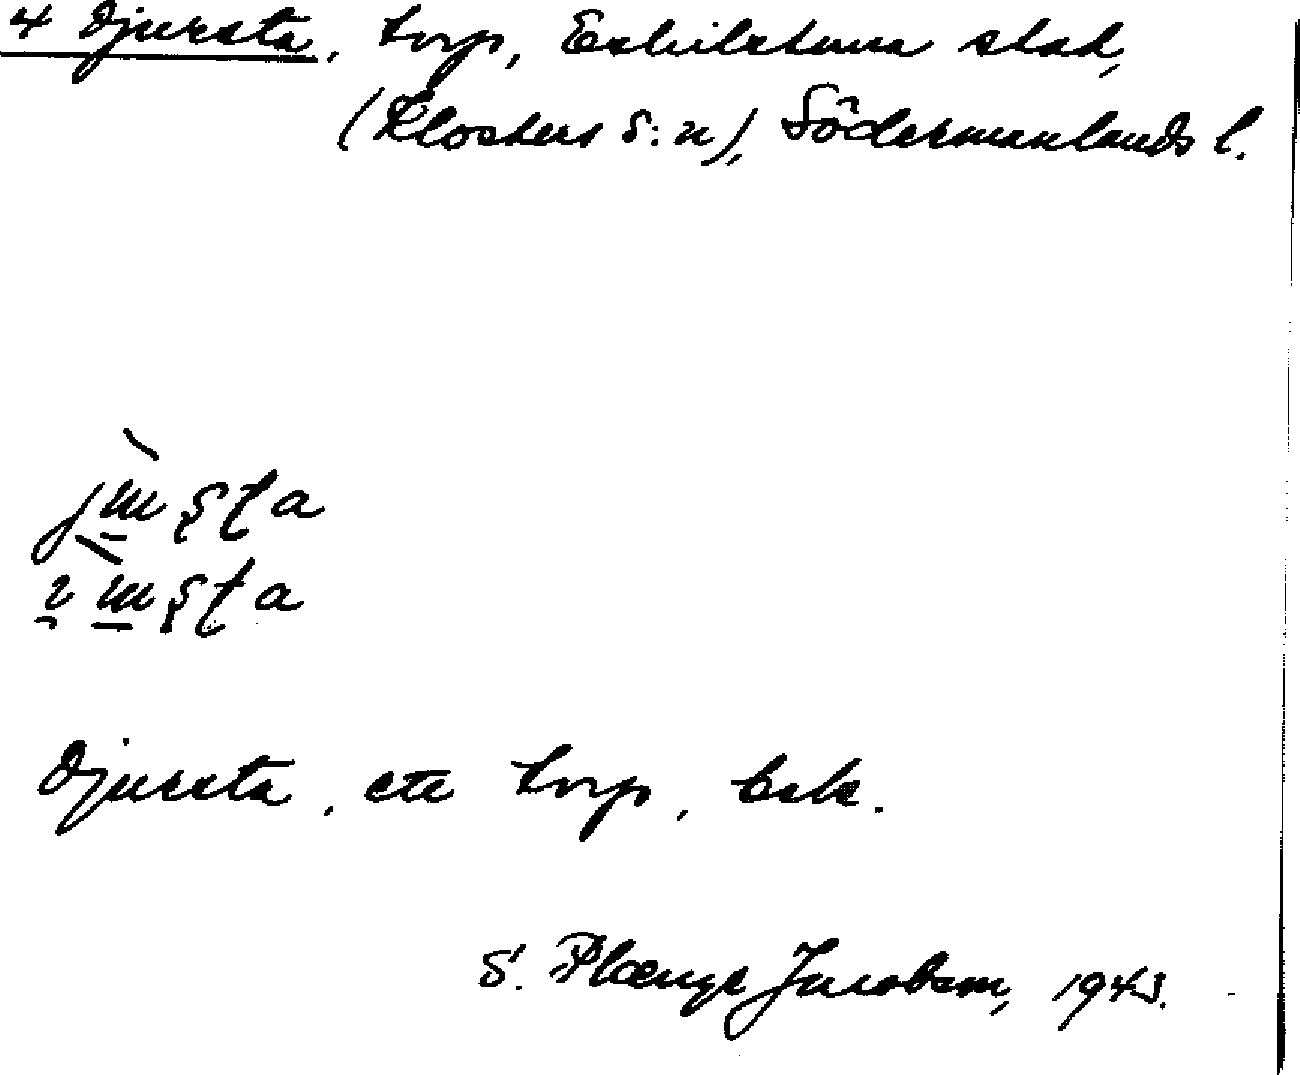 4 Djursta, torp, Eskilstuna stad,
(Klosters s:n), Södermanlands l.
Djursta, ett torp, bek.
S. Plænge Jacobson, 1943.